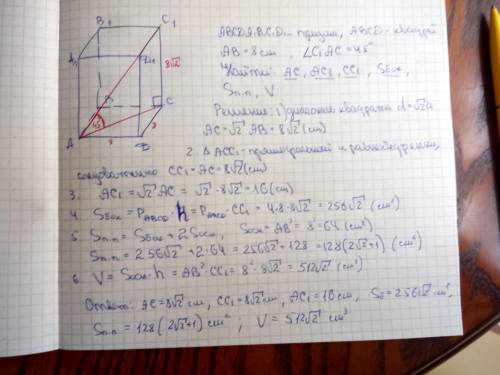 B₁
C₁
ABCDA₁B₁C₁D₁ - призма, ABCD - квадрат
A₁
D₁
AB = 8 cm , ∠C₁AC = 45°
8√2
Найти: AC, AC₁, CC₁, Sбок,
Sп.п, V
B
C
Решение: 1) диагональ квадрата d = √2a
45°
AC = √2 AB = 8√2 (cm)
A
8
8
2. Δ ACC₁ - прямоугольный и равнобедренный,
следовательно CC₁ = AC = 8√2 (cm)
3. AC₁ = √2 AC = √2 · 8√2 = 16 (cm)
4. Sбок = PABCD · h = PABCD · CC₁ = 4·8·8√2 = 256√2 (cm²)
5. Sп.п = Sбок + 2Sосн, Sосн = AB² = 8² = 64 (cm²)
Sп.п = 256√2 + 2·64 = 256√2 + 128 = 128(2√2+1) (cm²)
6. V = Sосн · h = AB² · CC₁ = 8² · 8√2 = 512√2 (cm³)
Ответ: AC = 8√2 cm, CC₁ = 8√2 cm, AC₁ = 16 cm, Sб = 256√2 cm²,
Sп.п = 128(2√2+1) cm² , V = 512√2 cm³